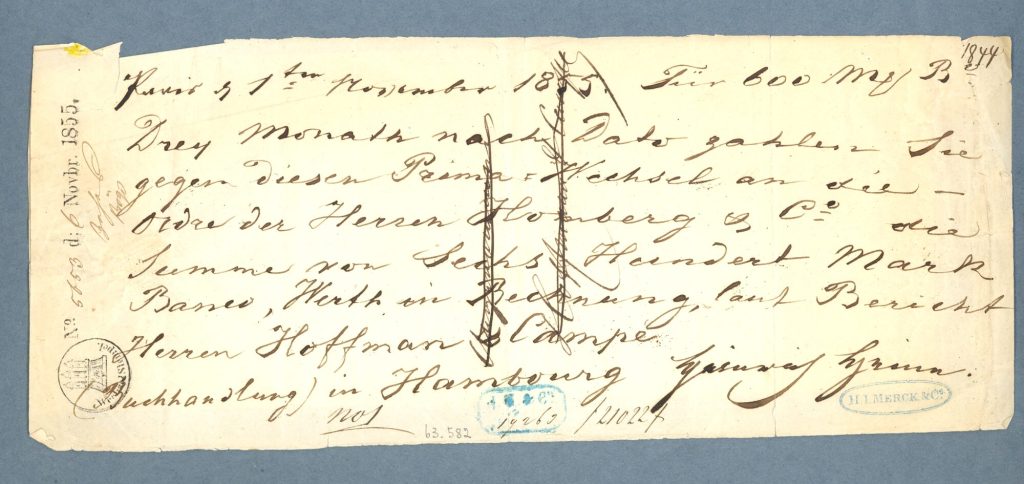 1844
Paris d 1ten November 1855. Für 600 M B
Drey Monath nach Dato zahlen Sie
gegen diesen Prima-Wechsel an die
Ordre der Herren Homberg & Co die
Summe von Sechs Hundert Mark
Banco, Werth in Rechnung, laut Bericht
Herren Hoffman & Campe
Buchhandlung) in Hambourg Heinrich Heine.
No 5653 d: 6 Novbr. 1855.
No1
63.582
19263
/21022/
H.I. MERCK & Co